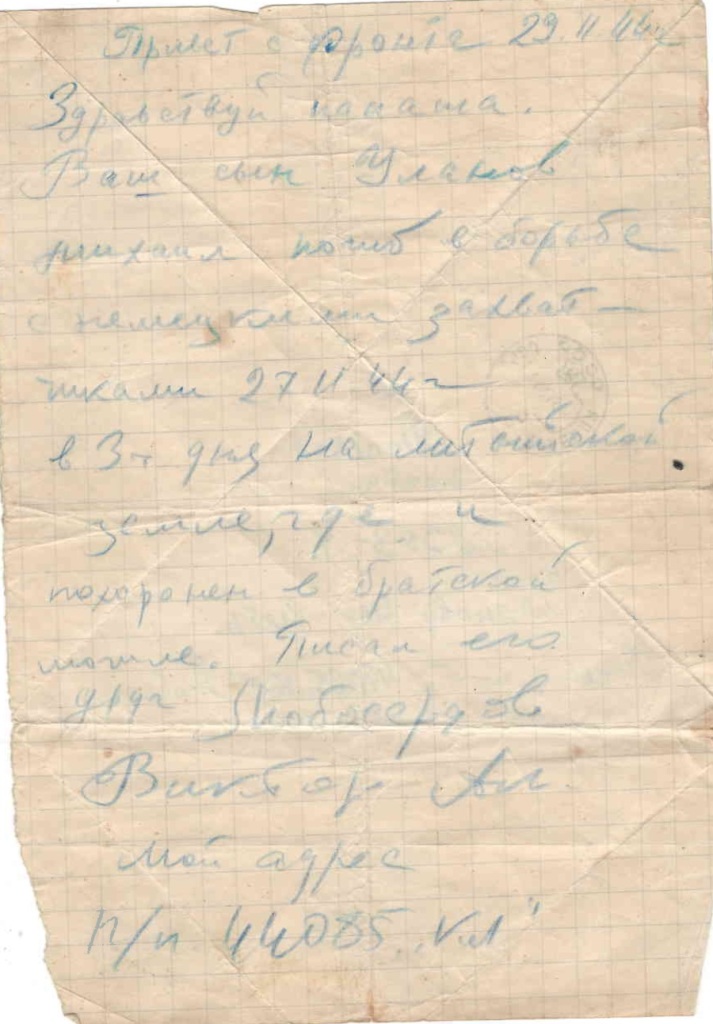 Привет с фронта 29.11 44 г
Здравствуй папаша.
Ваш сын Уланов
михаил погиб в борьбе
с немецкими захват-
чиками 27 11 44 г
в 3 дня на литовской
земле, где и
похоронен в братской
могиле. Писал его
друг Любосердов
Виктор Ал.
Мой адрес
П/п 44085 "КЛ"